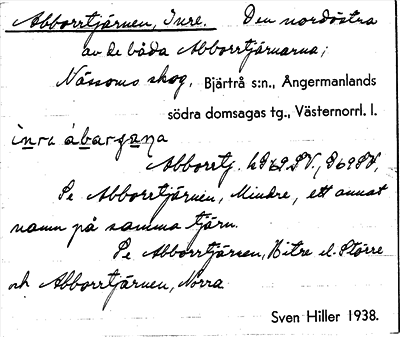 Abborrtjärnen, Inre. Den nordöstra
av de båda Abborrtjärnarna;
Nässoms skog, Bjärtrå s:n., Ångermanlands
södra domsagas tg., Västernorrl. l.
Abborrtj.
Se Abborrtjärnen, Mindre, ett annat
namn på samma tjärn.
Se Abborrtjärnen, Yttre el. Större
och Abborrtjärnen, Norra
Sven Hiller 1938.